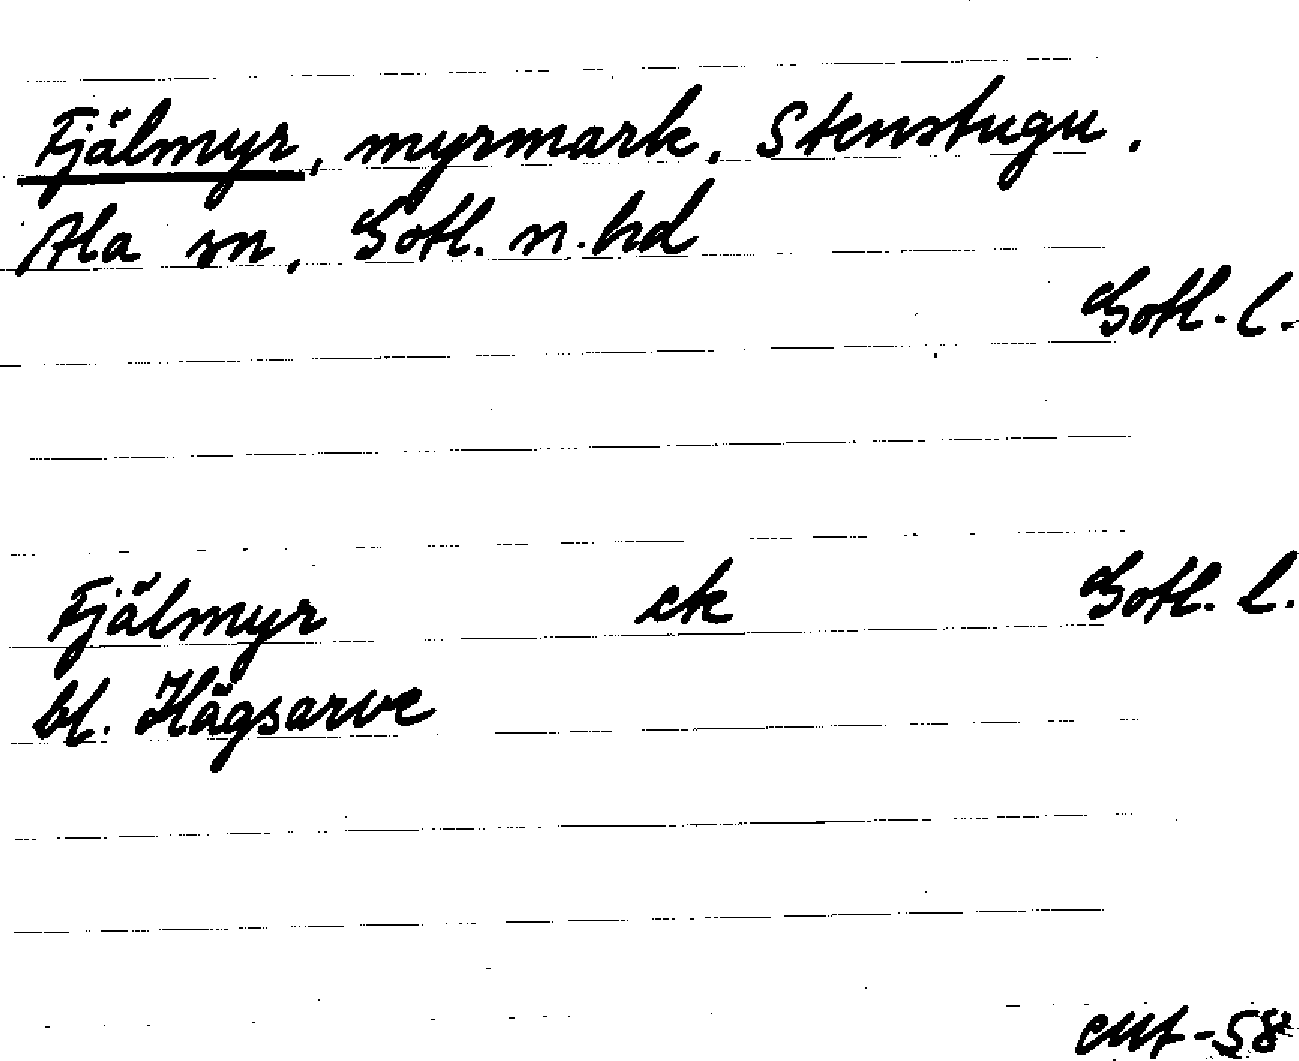 Fjälmyr, myrmark, Stenstugu,
Ala sn, Gotl. n. hd
Gotl. l.
Fjälmyr ek Gotl. l.
bl. Hägsarve
-58